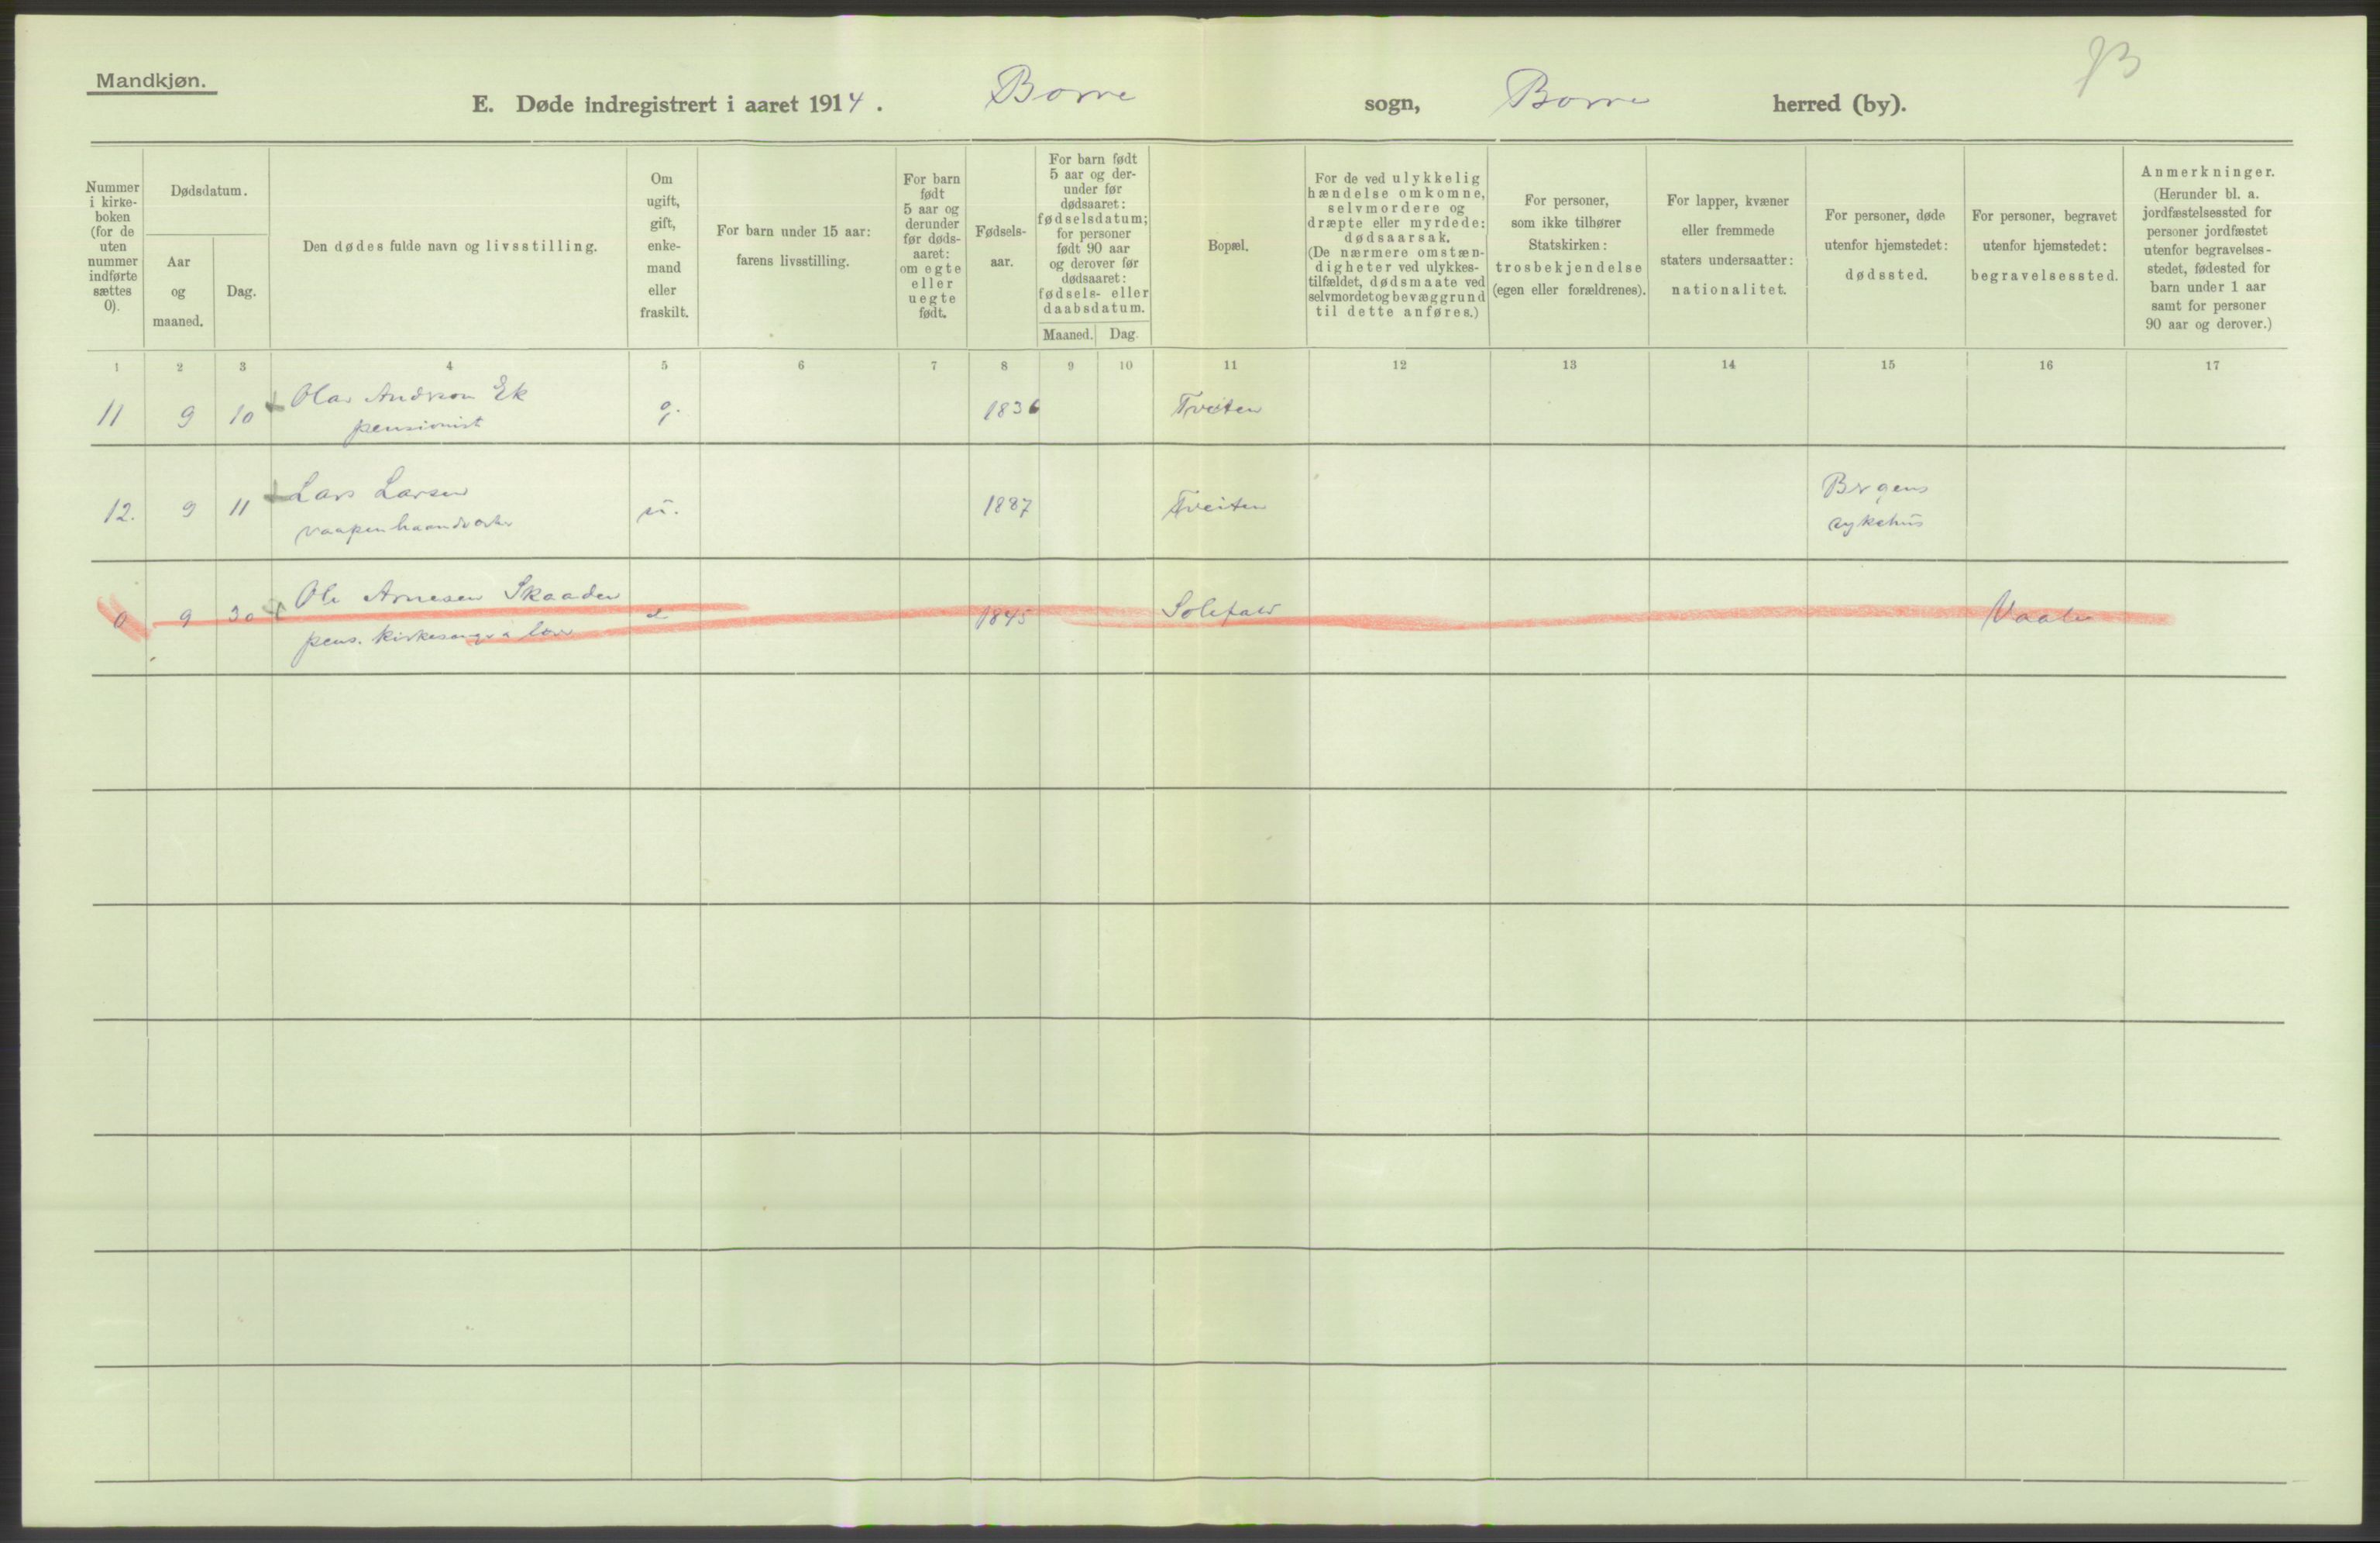 Mandkjøn.
E. Døde indregistrert i aaret 1914. Borre sogn, Borre herred (by).
Nummer
i kirke-
boken
(for de
uten
nummer
indførte
sættes
0).
Dødsdatum.
Aar
og
maaned.
Dag.
Den dødes fulde navn og livsstilling.
Om
ugift,
gift,
enke-
mand
eller
fraskilt.
For barn under 15 aar:
farens livsstilling.
For barn
født
5 aar og
derunder
før døds-
aaret:
om egte
eller
uegte
født.
Fødsels-
aar.
For barn født
5 aar og der-
under før
dødsaaret:
fødselsdatum;
for personer
født 90 aar
og derover før
dødsaaret:
fødsels- eller
daabsdatum.
Maaned. Dag.
Bopæl.
For de ved ulykkelig
hændelse omkomne,
selvmordere og
dræpte eller myrdede:
dødsaarsak.
(De nærmere omstæn-
digheter ved ulykkes-
tilfældet, dødsmaate ved
selvmordet og bevæggrund
til dette anføres.)
For personer,
som ikke tilhører
Statskirken:
trosbekjendelse
(egen eller forældrenes).
For lapper, kvæner
eller fremmede
staters undersaatter:
nationalitet.
For personer, døde
utenfor hjemstedet:
dødssted.
For personer, begravet
utenfor hjemstedet:
begravelsessted.
Anmerkninger.
(Herunder bl. a.
jordfæstelsessted for
personer jordfæstet
utenfor begravelses-
stedet, fødested for
barn under 1 aar
samt for personer
90 aar og derover.)
1 2 3 4 5 6 7 8 9 10 11 12 13 14 15 16 17
11 9 10 Olav Andrson Ek g. 1836 Tveiten
pensionist
12. 9 11 Lars Larsen u. 1887 Tveiten Brgens
vaapenhaandverker sykehus
0 9 30 Ole Arnesen Skaaden 1845 Solefald Vaale
pens. kirkesanger & lær